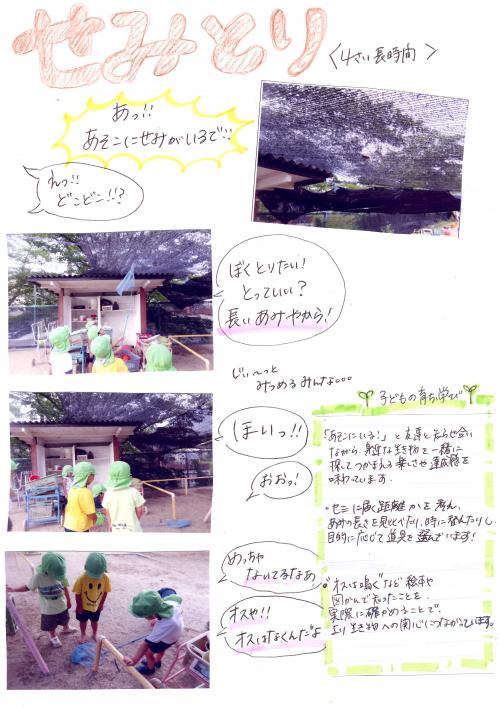 せみとり
〈4さい長時間〉
あっ!!
あそこにせみがいるで!!
えっ!!
どこどこ!!?
ぼくとりたい!
とっていい?
長いあみやから!
じぃ〜っと
みつめるみんな。。。
ほいっ!!
おおっ!
めっちゃ
ないてるなあ
オスや!!
オスはなくんだよ
子どもの育ち・学び
「あそこにいる!」と友達と知らせ合い
ながら、身近な生き物を一緒に
探してつかまえる楽しさや達成感を
味わっています。
・セミに届く距離かを考え、
あみの長さを見比べたり、時に
目的に応じて道具を選んでいます!
・"オスは鳴く"など絵本や
図かんで知ったことを、
実際に確かめることで、
より生き物への関心につながっています。